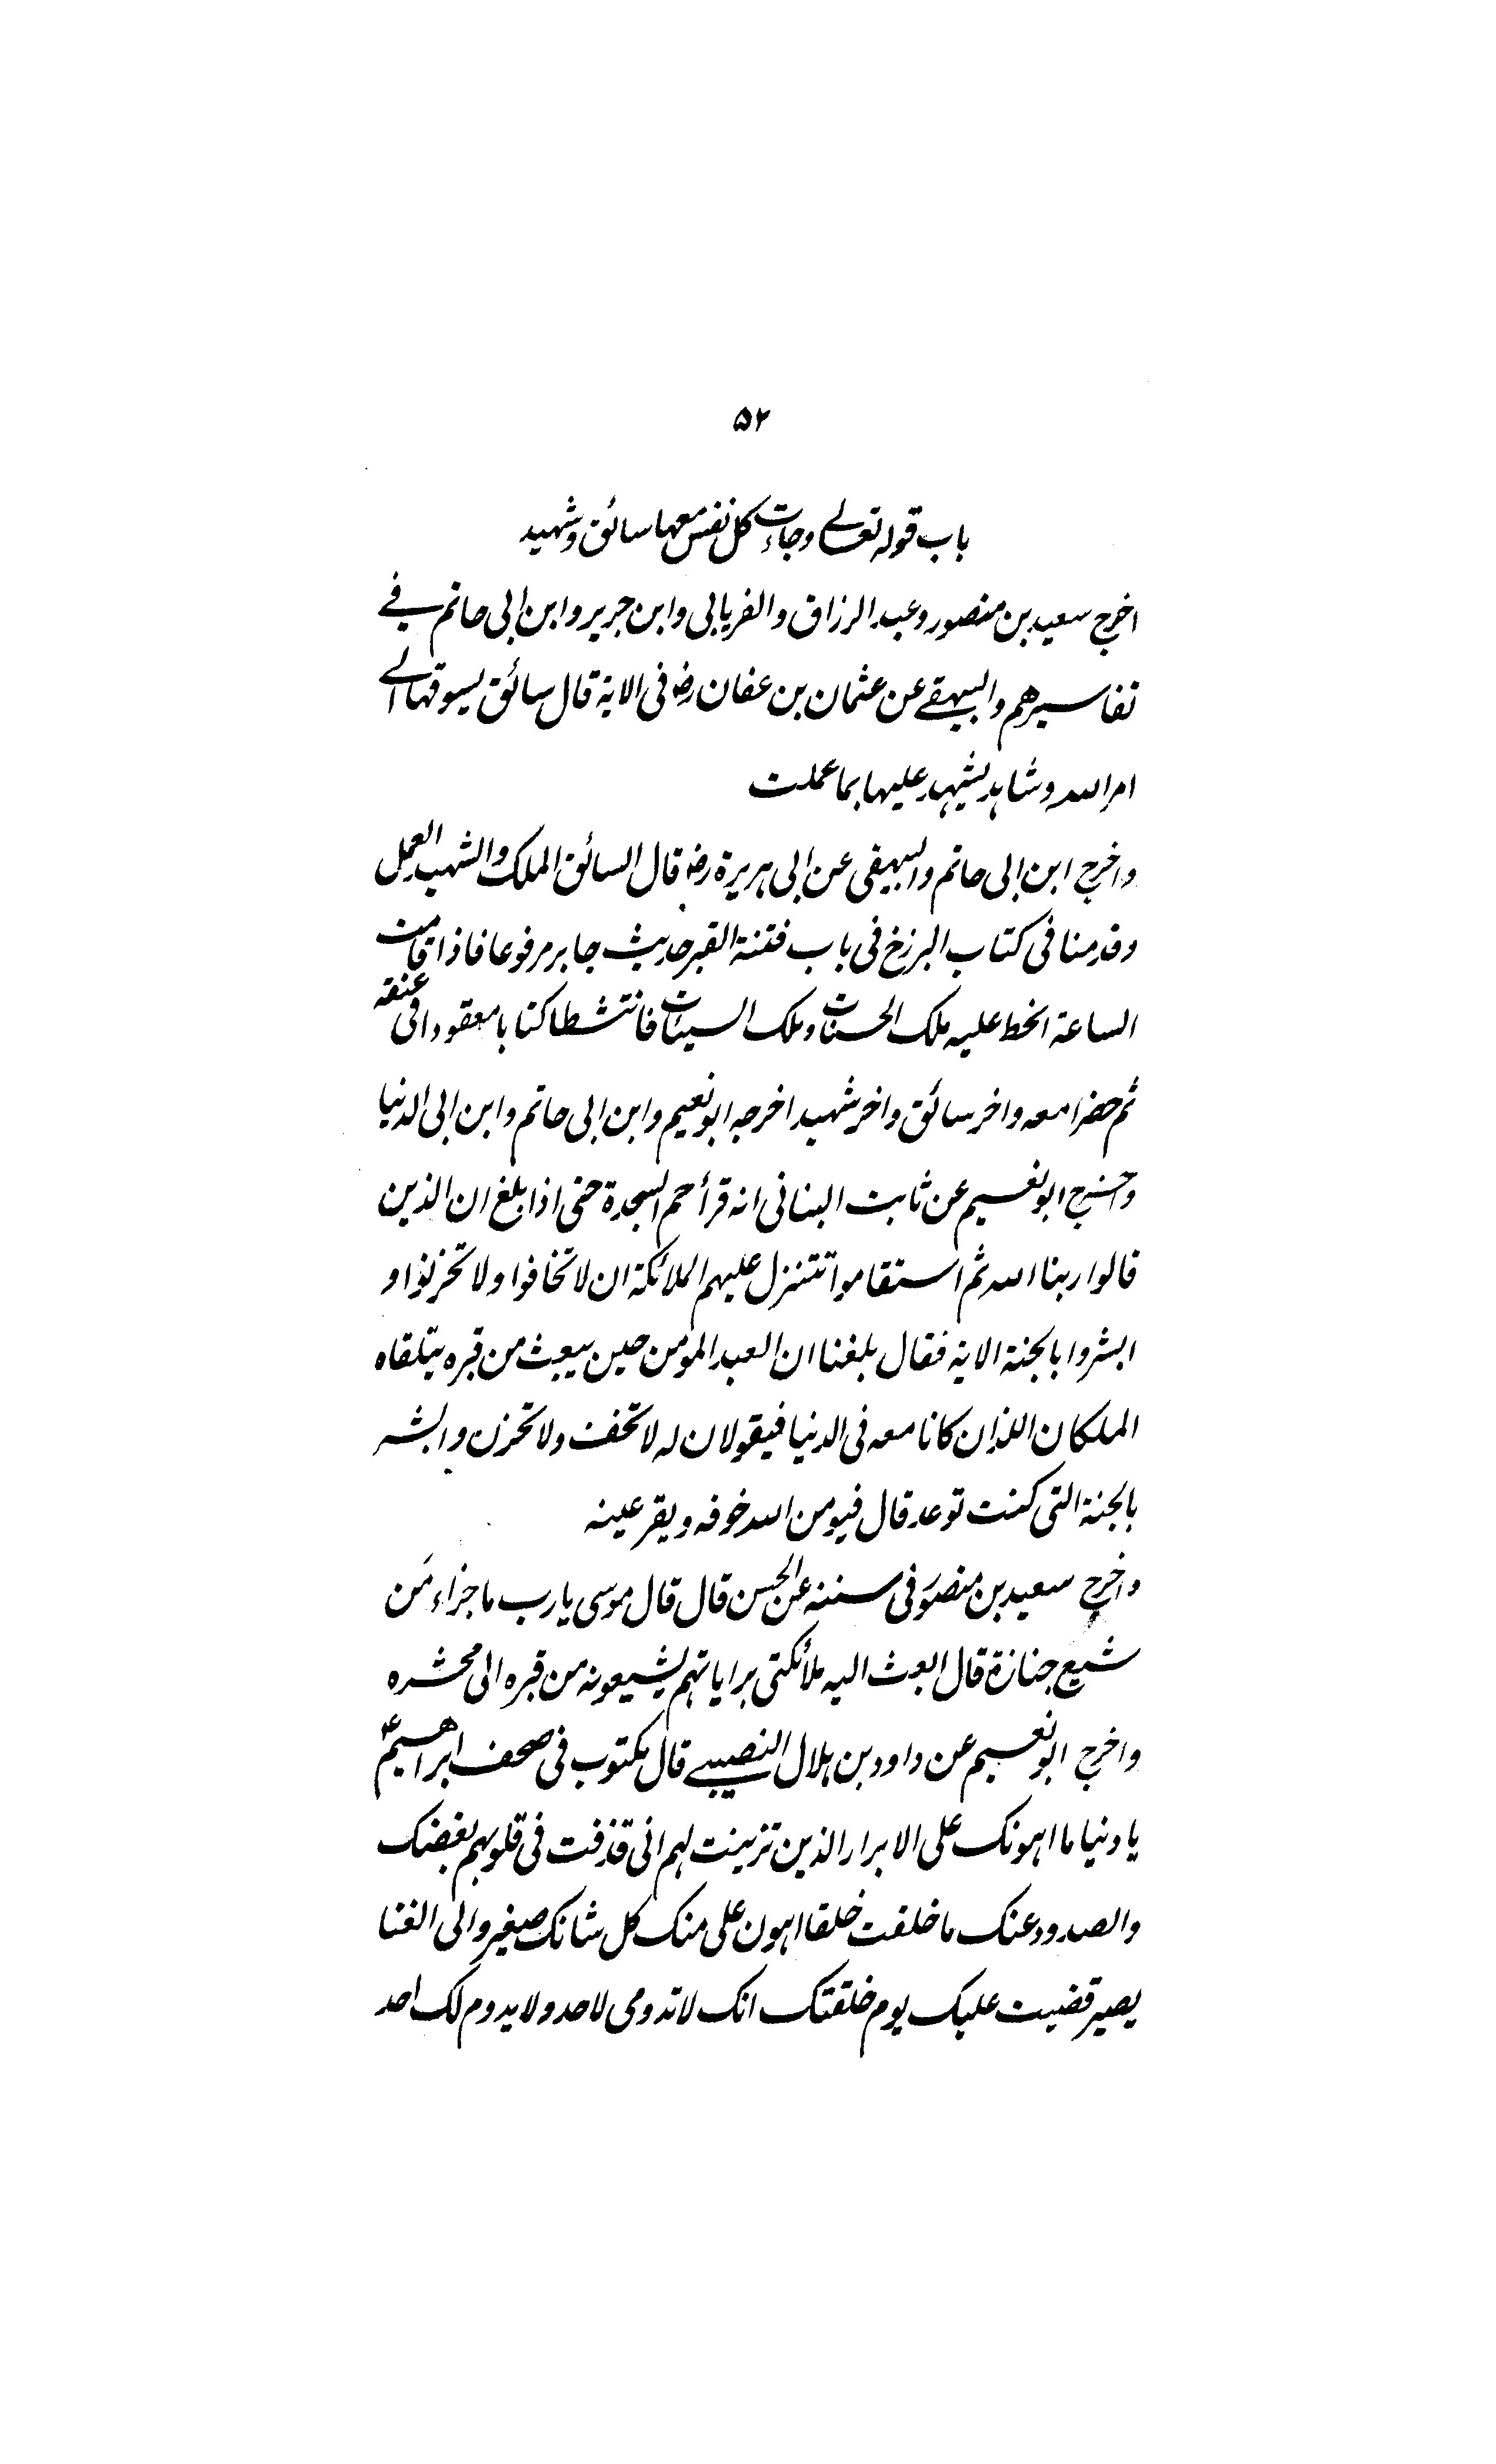 ۵۲
باب قوله تعالے وجاءت کل نفس معها سائق وشهید
اخرج سعید بن منصور وعبد الرزاق والفریابی وابن جریر وابن ابی حاتم فے
تفاسیرهم والبیهقے عن عثمان بن عفان رض فی الایة قال سائق یسوقها الے
امر الله وشاہد یشهد علیها بما عملت
واخرج ابن ابی حاتم والبیهقی عن ابی ہریرة رض قال السائق الملک والشهید العمل
وقدمنا فی کتاب البرزخ فی باب فتنة القبر حدیث جابر مرفوعا فاذا قامت
الساعة انحط علیه ملک الحسنات وملک السیئات فانتشطا کتابا معقودا فی عنقه
ثم حضرا معه واخر سائق واخر شهید اخرجه ابو نعیم وابن ابی حاتم وابن ابی الدنیا
واخرج ابو نعیم عن ثابت البنانی انه قرأ حم السجدة حتی اذا بلغ ان الذین
قالوا ربنا الله ثم استقاموا تتنزل علیهم الملائکة ان لا تخافوا ولا تحزنوا و
ابشروا بالجنة الایة فقال بلغنا ان العبد المومن حین یبعث من قبره یتلقاه
الملکان اللذان کانا معه فی الدنیا فیقولان له لا تخف ولا تحزن وابشر
بالجنة التی کنت توعد قال فیومن الله خوفه ویقر عینه
واخرج سعید بن منصور فی سننه عن الحسن قال قال موسی یا رب ما جزاء من
شیع جنازة قال ابعث الیه ملائکتی برایاتهم یشیعونه من قبره الی محشره
واخرج ابو نعیم عن داود بن ہلال النصیبے قال مکتوب فی صحف ابراهیم ؑ
یا دنیا ما اهونک علی الابرار الذین تزینت لهم انی قذفت فی قلوبهم بغضک
والصدود عنک ما خلقت خلقا اهون علی منک کل شانک صغیر والی الفنا
یصیر قضیت علیک یوم خلقتک انک لا تدومی لاحد ولا یدوم لک احد